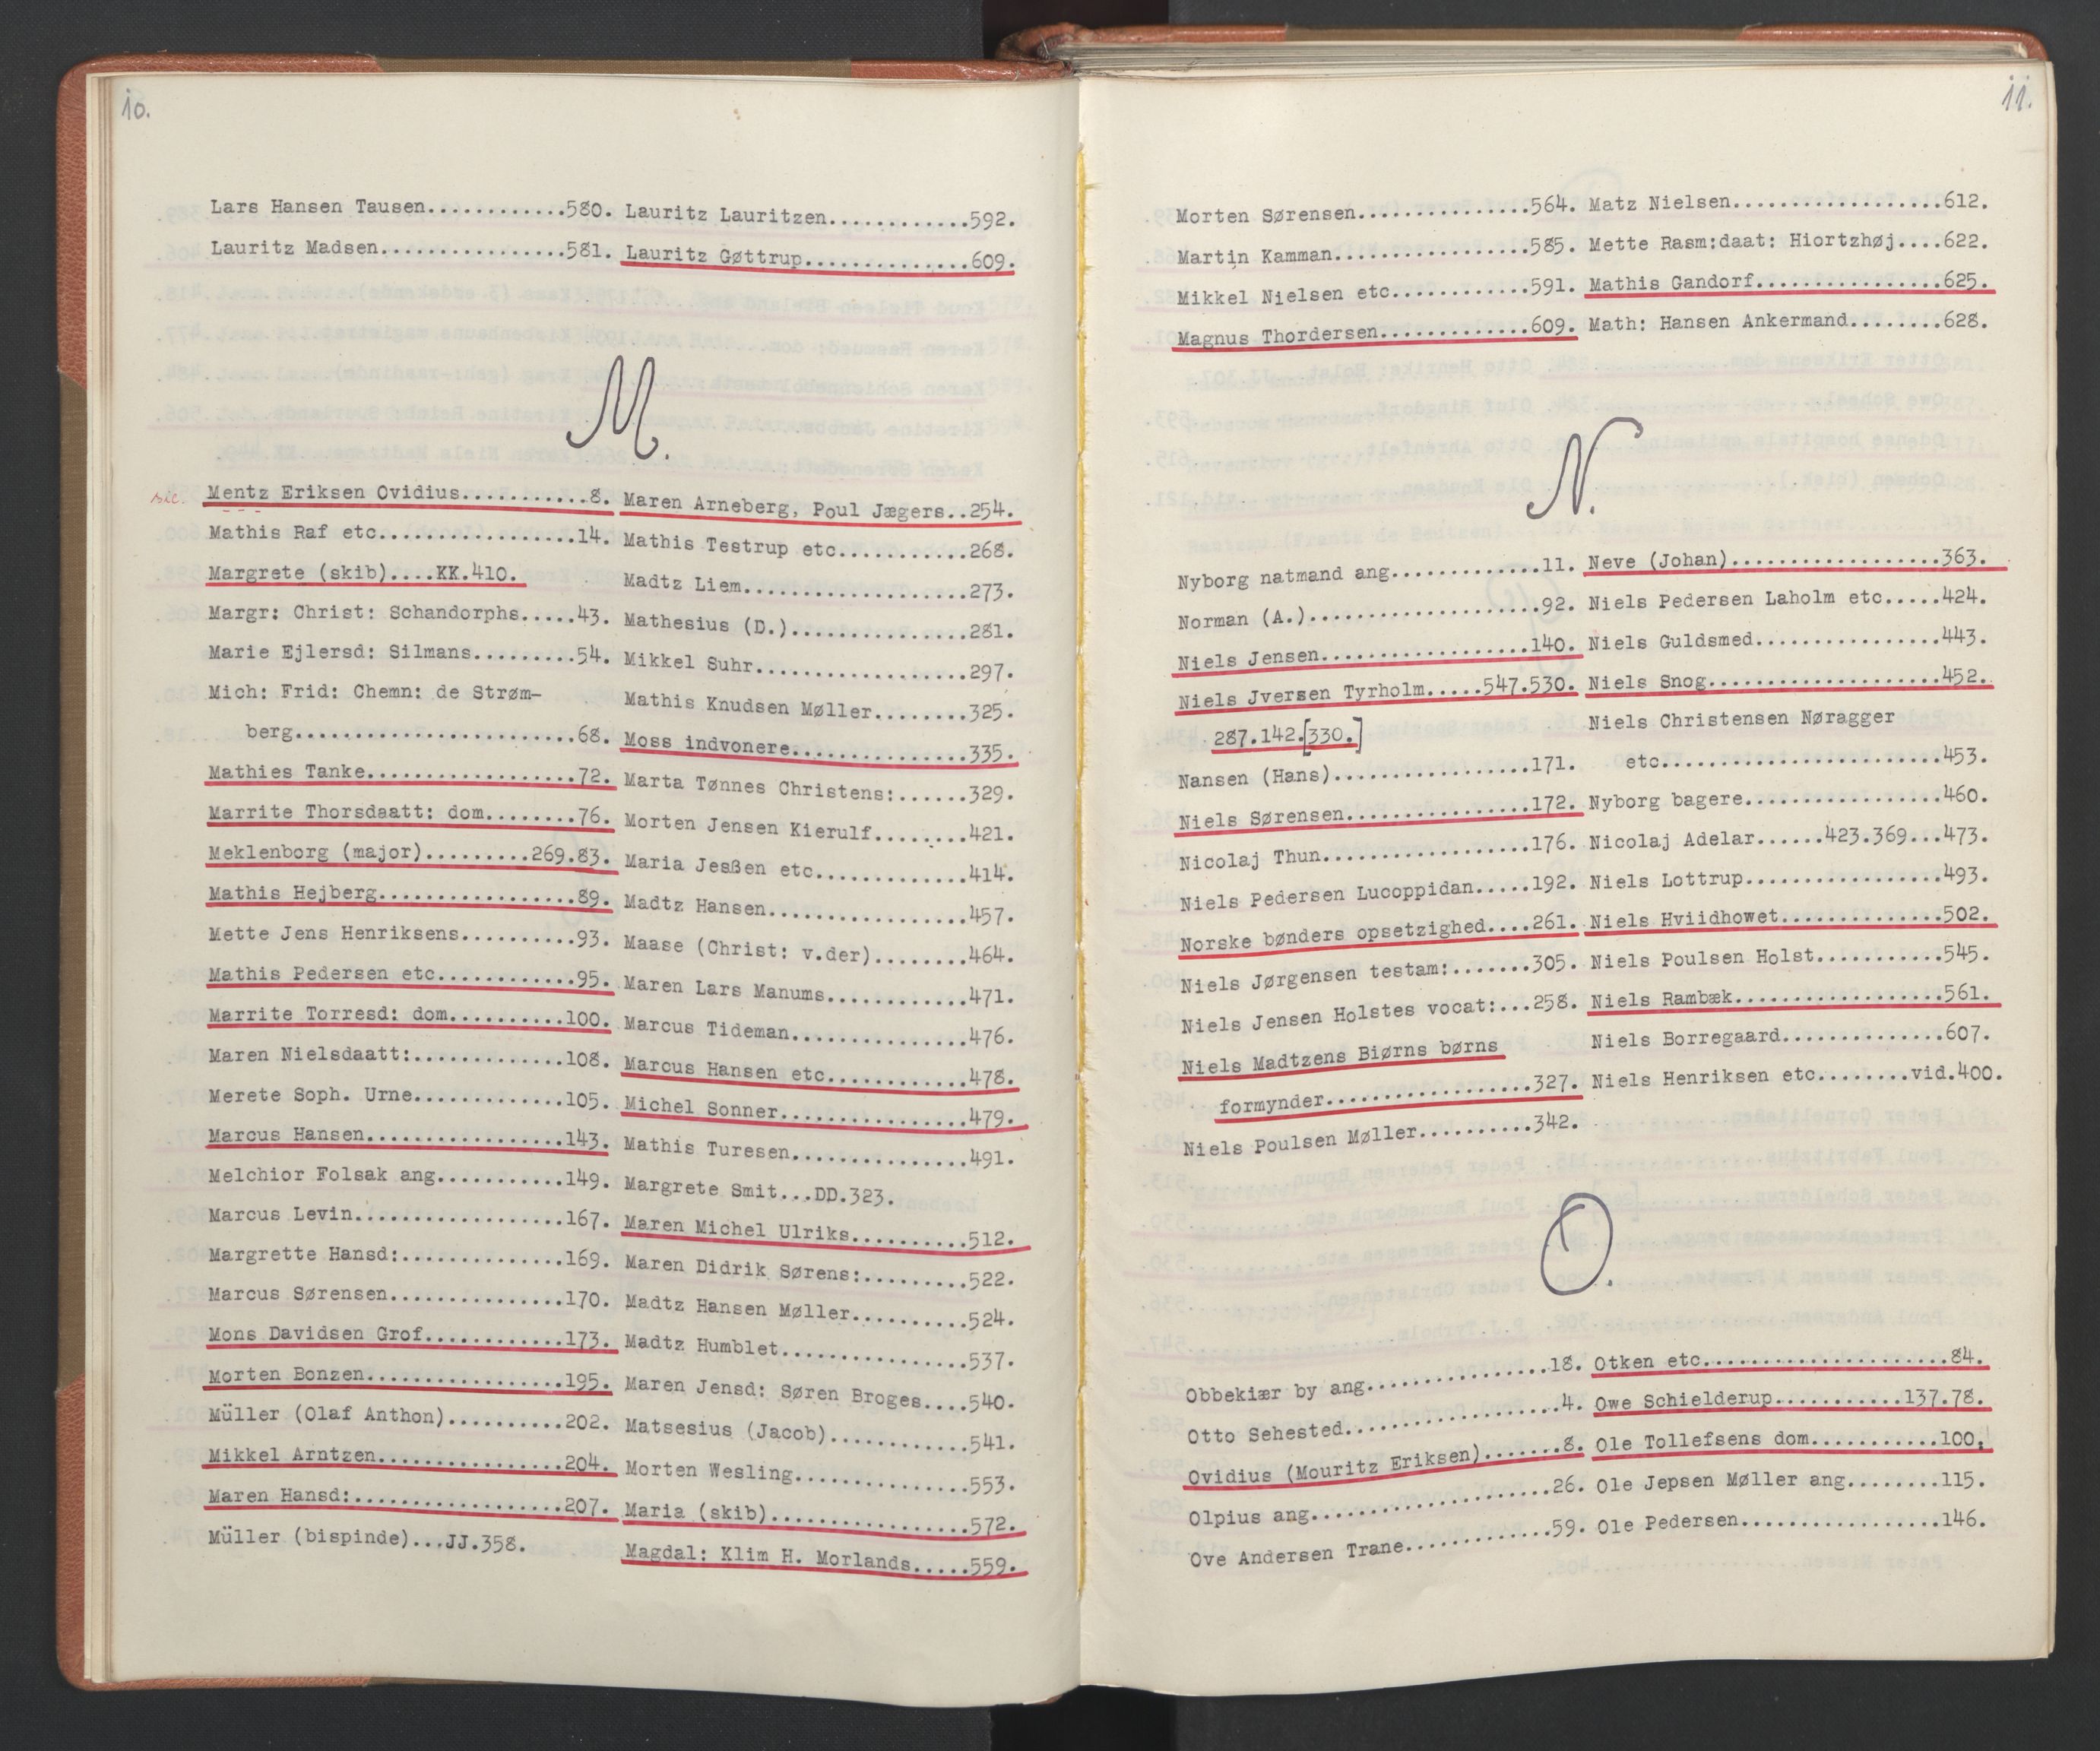 10.
Lars Hansen Tausen............580.
Lauritz Madsen................581.
Lauritz Lauritzen............592.
Lauritz Gøttrup..............609.
M.
sic.
Mentz Eriksen Ovidius...........8.
Mathis Raf etc.................14.
Margrete (skib)....KK.410.
Margr: Christ: Schandorphs.....43.
Marie Ejlersd: Silmans.........54.
Mich: Frid: Chemn: de Strøm-
berg........................68.
Mathies Tanke..................72.
Marrite Thorsdaatt: dom........76.
Meklenborg (major).........269.83.
Mathis Hejberg.................89.
Mette Jens Henriksens..........93.
Mathis Pedersen etc............95.
Marrite Torresd: dom..........100.
Maren Nielsdaatt:.............108.
Merete Soph. Urne.............105.
Marcus Hansen.................143.
Melchior Folsak ang...........149.
Marcus Levin..................167.
Margrette Hansd:..............169.
Marcus Sørensen...............170.
Mons Davidsen Grof............173.
Morten Bonzen.................195.
Müller (Olaf Anthon)..........202.
Mikkel Arntzen................204.
Maren Hansd:..................207.
Müller (bispinde)...JJ.358.
Maren Arneberg, Poul Jægers..254.
Mathis Testrup etc...........268.
Madtz Liem...................273.
Mathesius (D.)...............281.
Mikkel Suhr..................297.
Mathis Knudsen Møller........325.
Moss indvonere...............335.
Marta Tønnes Christens:......329.
Morten Jensen Kierulf........421.
Maria Jesßen etc.............414.
Madtz Hansen.................457.
Maase (Christ: v.der)........464.
Maren Lars Manums............471.
Marcus Tideman...............476.
Marcus Hansen etc............478.
Michel Sonner................479.
Mathis Turesen...............491.
Margrete Smit...DD.323.
Maren Michel Ulriks..........512.
Maren Didrik Sørens:.........522.
Madtz Hansen Møller..........524.
Madtz Humblet................537.
Maren Jensd: Søren Broges....540.
Matsesius (Jacob)............541.
Morten Wesling...............553.
Maria (skib).................572.
Magdal: Klim H. Morlands.....559.
11.
Morten Sørensen...............564.
Martin Kamman.................585.
Mikkel Nielsen etc............591.
Magnus Thordersen.............609.
Matz Nielsen..................612.
Mette Rasm:daat: Hiortzhøj....622.
Mathis Gandorf................625.
Math: Hansen Ankermand........628.
N.
Nyborg natmand ang.............11.
Norman (A.)....................92.
Niels Jensen..................140.
Niels Jversen Tyrholm.....547.530.
287.142.[330.]
Nansen (Hans).................171.
Niels Sørensen................172.
Nicolaj Thun..................176.
Niels Pedersen Lucoppidan.....192.
Norske bønders opsetzighed....261.
Niels Jørgensen testam:.......305.
Niels Jensen Holstes vocat:...258.
Niels Madtzens Biørns børns
formynder..................327.
Niels Poulsen Møller..........342.
Neve (Johan)..................363.
Niels Pedersen Laholm etc.....424.
Niels Guldsmed................443.
Niels Snog....................452.
Niels Christensen Nøragger
etc........................453.
Nyborg bagere.................460.
Nicolaj Adelar......423.369...473.
Niels Lottrup.................493.
Niels Hviidhowet..............502.
Niels Poulsen Holst...........545.
Niels Rambæk..................561.
Niels Borregaard..............607.
Niels Henriksen etc........vid.400.
O.
Obbekiær by ang................18.
Otto Sehested...................4.
Ovidius (Mouritz Eriksen).......8.
Olpius ang.....................26.
Ove Andersen Trane.............59.
Otken etc......................84.
Owe Schielderup............137.78.
Ole Tollefsens dom...........100.
Ole Jepsen Møller ang........115.
Ole Pedersen.................146.